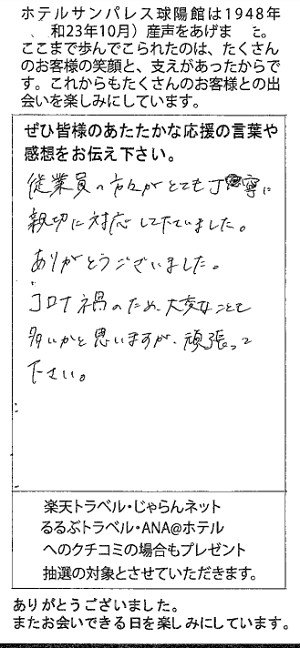 ホテルサンパレス球陽館は1948年
、 和23年10月）産声をあげま と。
ここまで歩んでこられたのは、たくさん
のお客様の笑顔と、支えがあったからで
す。これからもたくさんのお客様との出
会いを楽しみにしています。
ぜひ皆様のあたたかな応援の言葉や
感想をお伝え下さい。
従業員の方々がとても丁寧に
親切に対応して下ていました。
ありがとうございました。
コロナ禍のため、大変なことも
多いかと思いますが、頑張って
下さい。
楽天トラベル・じゃらんネット
るるぶトラベル・ANA@ホテル
へのクチコミの場合もプレゼント
抽選の対象とさせていただきます。
ありがとうございました。
またお会いできる日を楽しみにしています。